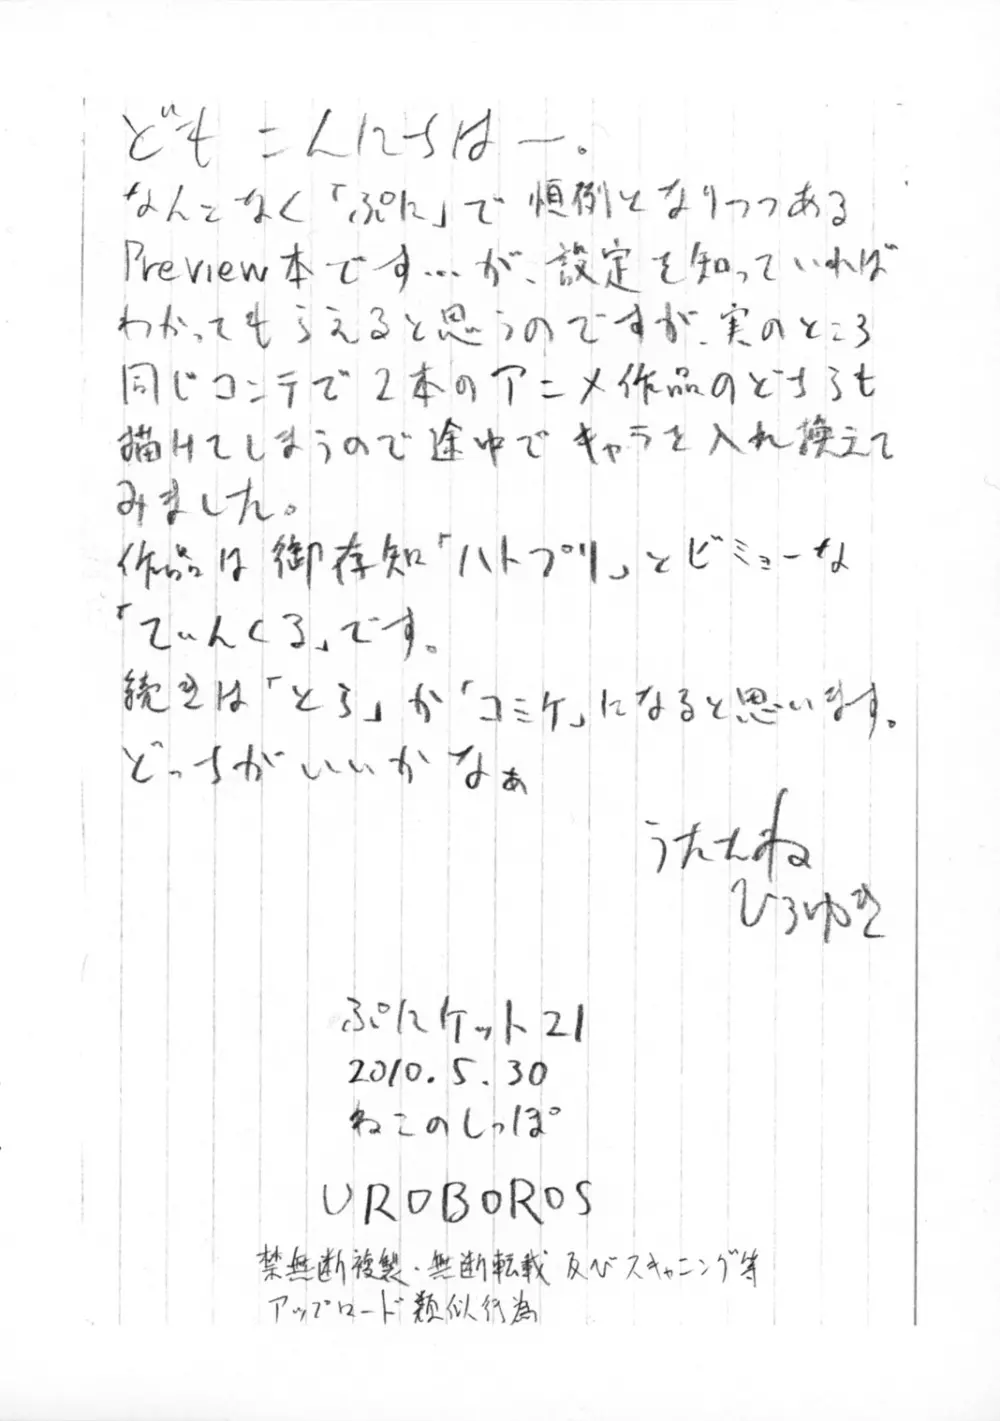 どもこんにちはー。
なんとなく「ぷに」で恒例となりつつある
Preview本です…が、設定を知っていれば
わかってもらえると思うのですが、実のところ
同じコンテで2本のアニメ作品のどちらも
描けてしまうので途中でキャラを入れ換えて
みました。
作品は御存知「ハトプリ」とビミョーな
「てぃんくる」です。
続きは「とら」か「コミケ」になると思います。
どっちがいいかなぁ
うたたね
ひろゆき
ぷにケット21
2010.5.30
ねこのしっぽ
UROBOROS
禁無断複製・無断転載及びスキャニング等
アップロード類似行為